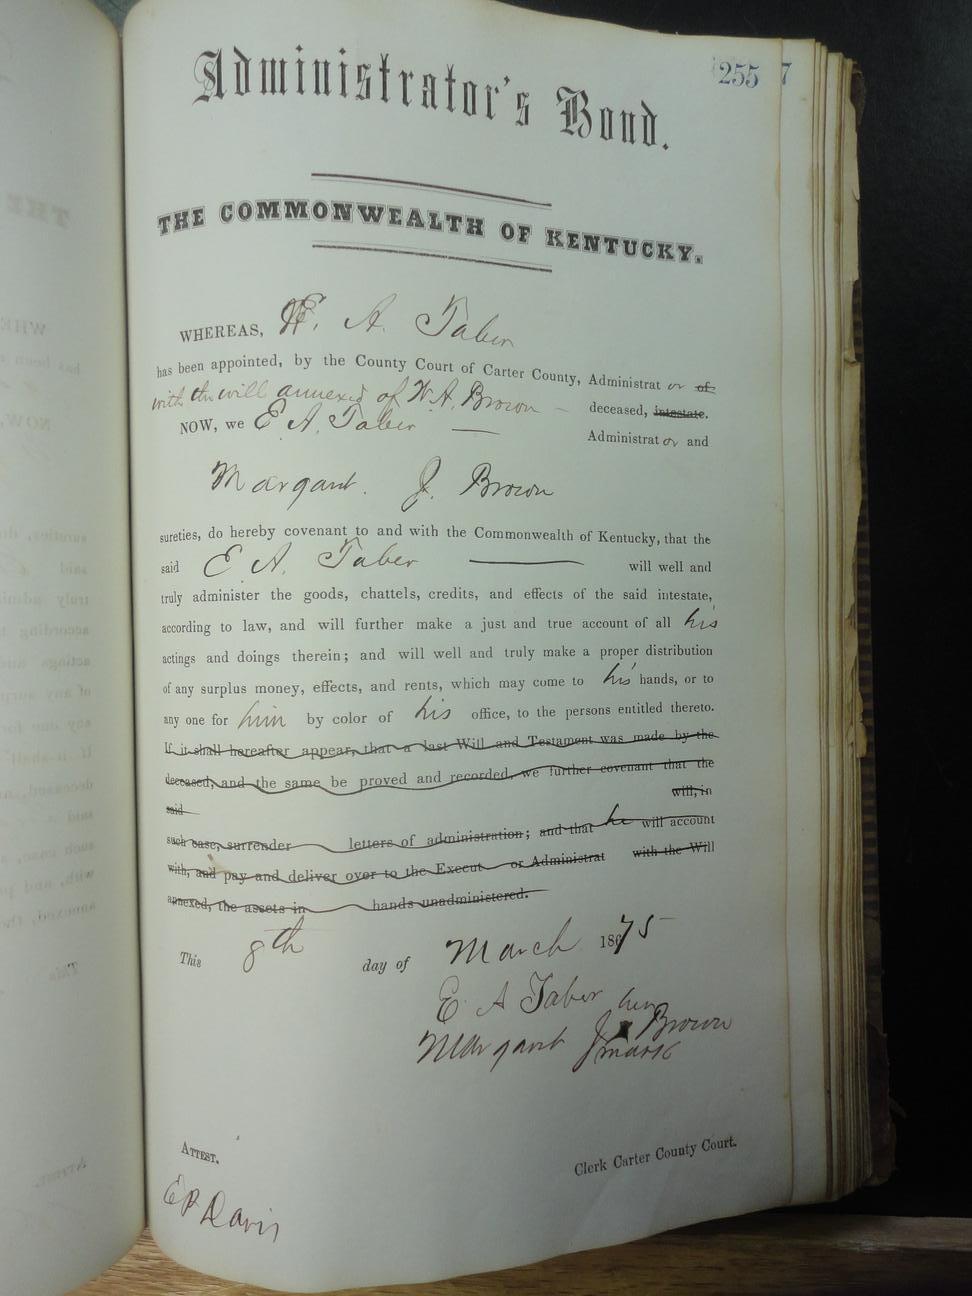 255 7
Administrator's Bond.
THE COMMONWEALTH OF KENTUCKY.
WHEREAS, E. A. Taber
has been appointed, by the County Court of Carter County, Administrat or of
with the will annexed of W. A. Brown deceased, intestate.
NOW, we E A. Taber Administrat or and
Margaret. J. Brown
sureties, do hereby covenant to and with the Commonwealth of Kentucky, that the
said E A. Taber will well and
truly administer the goods, chattels, credits, and effects of the said intestate,
according to law, and will further make a just and true account of all his
actings and doings therein; and will well and truly make a proper distribution
of any surplus money, effects, and rents, which may come to his hands, or to
any one for him by color of his office, to the persons entitled thereto.
If it shall hereafter appear, that a last Will and Testament was made by the
deceased, and the same be proved and recorded, we further covenant that the
said will, in
such case, surrender letters of administration; and that he will account
with, and pay and deliver over to the Execut or Administrat with the Will
annexed, the assets in hands unadministered.
This 8th day of March 1875
E A Taber
her
Margaret J Brown
mark
ATTEST.
Clerk Carter County Court.
E P Davis